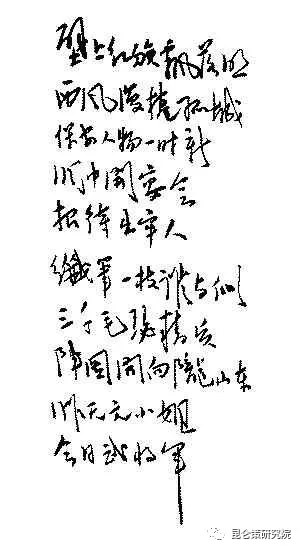 壁上红旗飘落照
西风漫卷孤城
保安人物一时新
洞中开宴会
招待出牢人
纤笔一枝谁与似
三千毛瑟精兵
阵图开向陇山东
昨天文小姐
今日武将军
昆仑策研究院